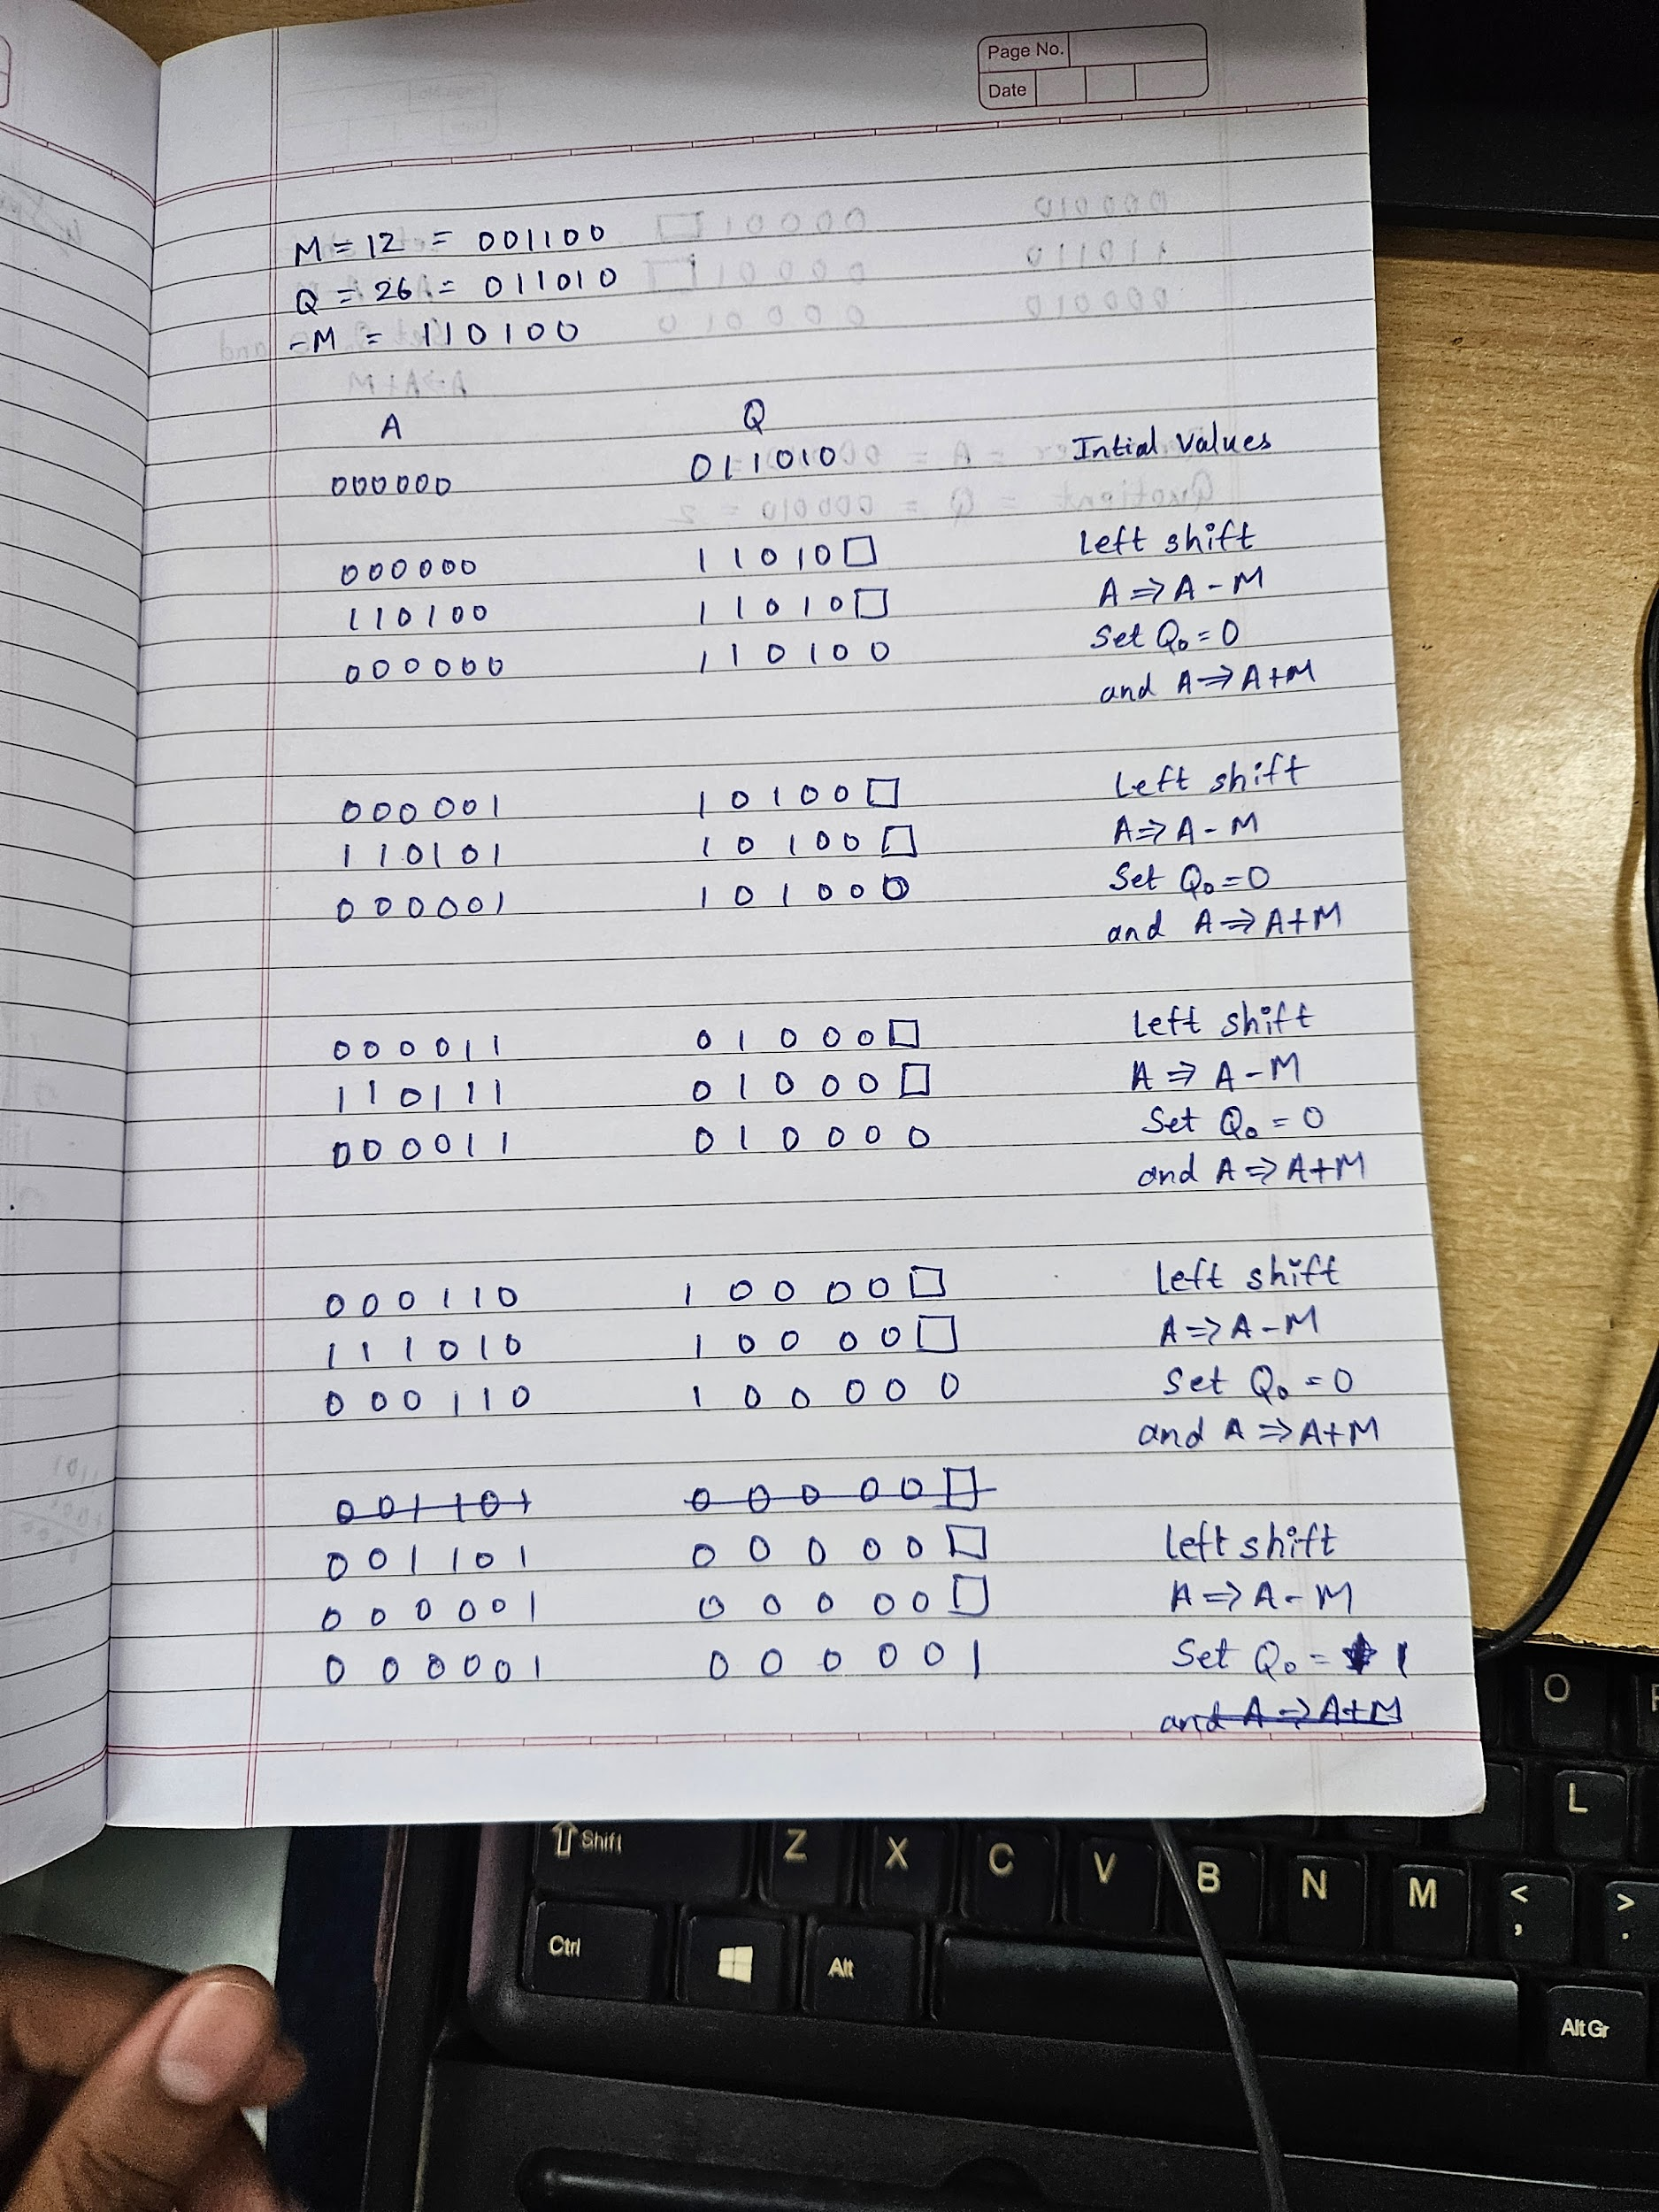 Page No.
Date
M = 12 = 001100
Q = 26 = 011010
-M = 110100
A Q
000000 011010 Intial values
000000 11010☐ Left shift
110100 11010☐ A ⇒ A - M
000000 110100 Set Q₀ = 0
and A ⇒ A + M
000001 10100☐ Left shift
110101 10100☐ A ⇒ A - M
000001 101000 Set Q₀ = 0
and A ⇒ A + M
000011 01000☐ Left shift
110111 01000☐ A ⇒ A - M
000011 010000 Set Q₀ = 0
and A ⇒ A + M
000110 10000☐ Left shift
111010 10000☐ A ⇒ A - M
000110 100000 Set Q₀ = 0
and A ⇒ A + M
001101 00000☐
001101 00000☐ Left shift
000001 00000☐ A ⇒ A - M
000001 000001 Set Q₀ = 1
and A ⇒ A + M
O
L
Shift Z X C V B N M < , > .
Ctrl Alt Alt Gr